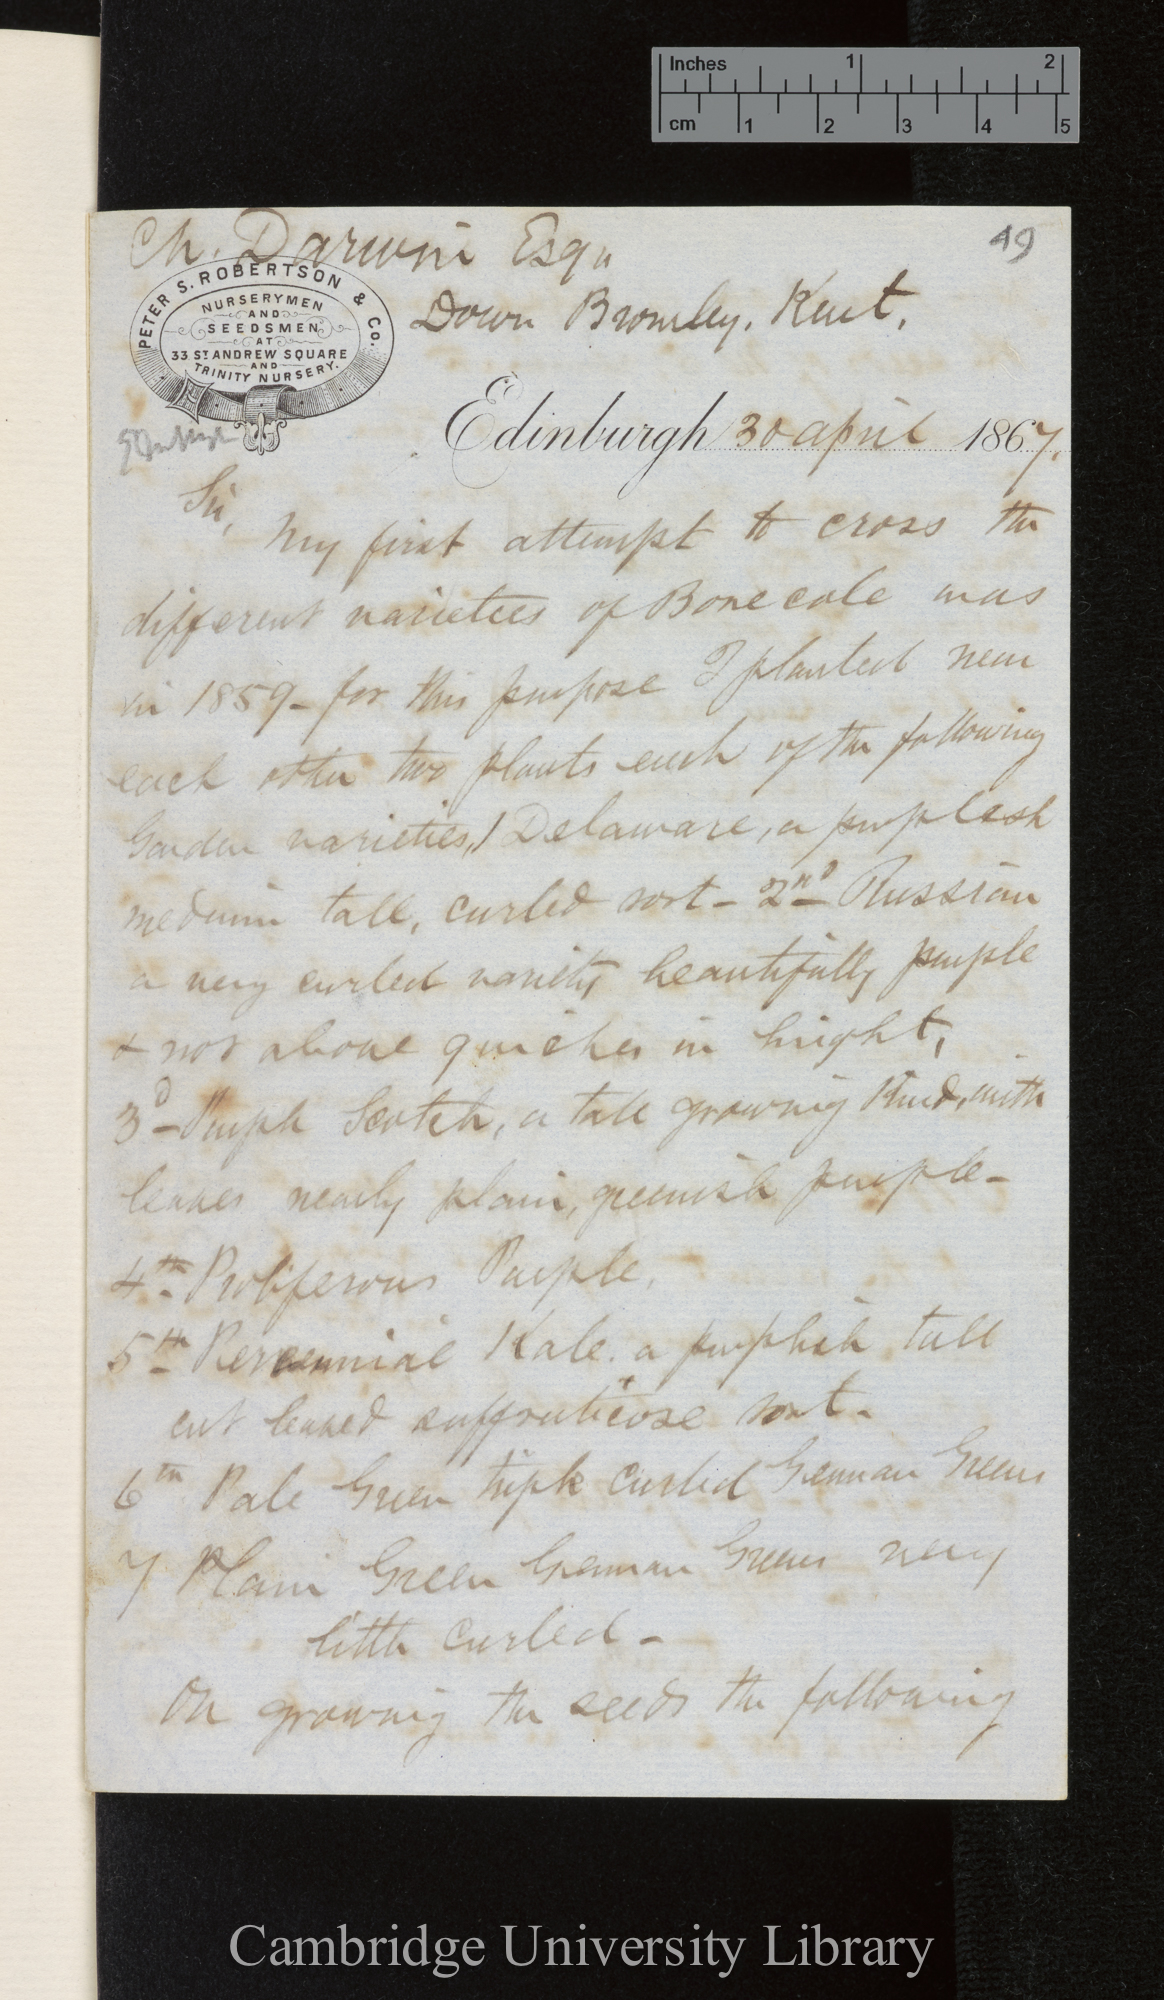 Inches 1 2
cm 1 2 3 4 5
Ch. Darwin Esqr
49
Down Bromley, Kent,
PETER S. ROBERTSON & Co.
NURSERYMEN
AND
SEEDSMEN
AT
33 ST ANDREW SQUARE
AND
TRINITY NURSERY.
Edinburgh 30 april 1867.
Sir,
My first attempt to cross the
different varieties of Borecole was
in 1859 - for this purpose I planted near
each other two plants each of the following
Garden varieties, 1 Delaware, a purplesh
medium tall, curled sort - 2nd Russian
a very curled variety beautifully purple
& not above 9 inches in hight,
3d - Purple Scotch, a tall growing Kind, with
leaves nearly plain, greenish purple -
4th - Proliferous Purple.
5th - Perennial Kale. a purplish tall
cut leaved suffruticose sort -
6th Pale Green triple curled German Greens
7 Plain Green German Greens very
little curled -
On growing the seeds the following
Cambridge University Library